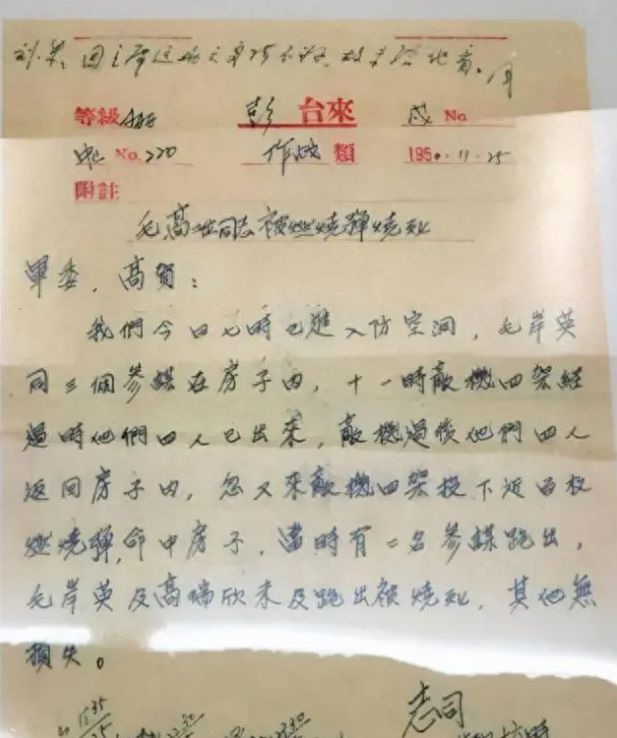 等級 彭 台來 戌 No
No. 220 作战 類 1950·11·25
附註
毛高二同志被燃燒彈燒死
軍委，高賀：
我們今日七時已進入防空洞，毛岸英
同三個參謀在房子内，十一時敵機四架經
過時他們四人已出來，敵機過後他們四人
返回房子内，忽又來敵機四架投下近百枚
燃燒彈，命中房子，當時有二名參謀跑出，
毛岸英及高瑞欣未及跑出被燒死，其他無
損失。
志司